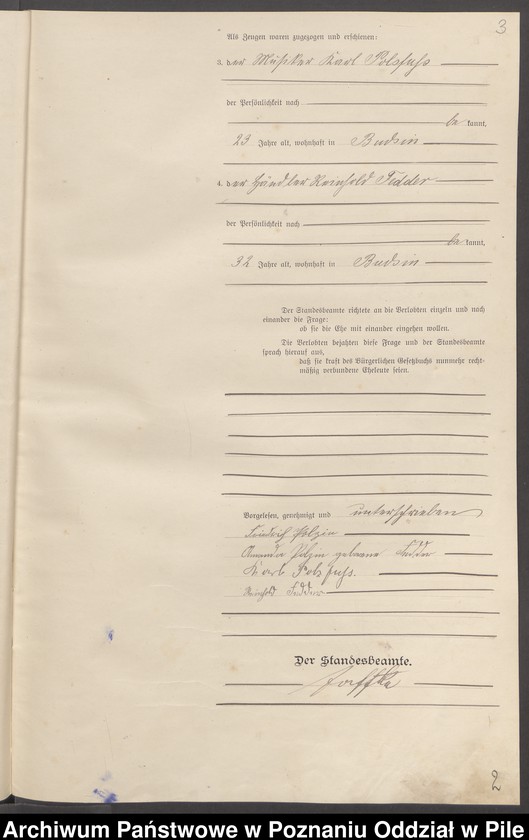 3
Als Zeugen waren zugezogen und erschienen:
3. der Musiker Karl Polsfuss
der Persönlichkeit nach
be kannt,
23 Jahre alt, wohnhaft in Budsin
4. der Händler Reinhold Fedder
der Persönlichkeit nach
be kannt,
32 Jahre alt, wohnhaft in Budsin
Der Standesbeamte richtete an die Verlobten einzeln und nach
einander die Frage:
ob sie die Ehe mit einander eingehen wollen.
Die Verlobten bejahten diese Frage und der Standesbeamte
sprach hierauf aus,
daß sie kraft des Bürgerlichen Gesetzbuchs nunmehr recht-
mäßig verbundene Eheleute seien.
Vorgelesen, genehmigt und unterschrieben
Friedrich Polzin
Amanda Polzin geborene Fedder
Karl Polsfuss.
Reinhold Fedder
Der Standesbeamte.
2
Archiwum Państwowe w Poznaniu Oddział w Pile